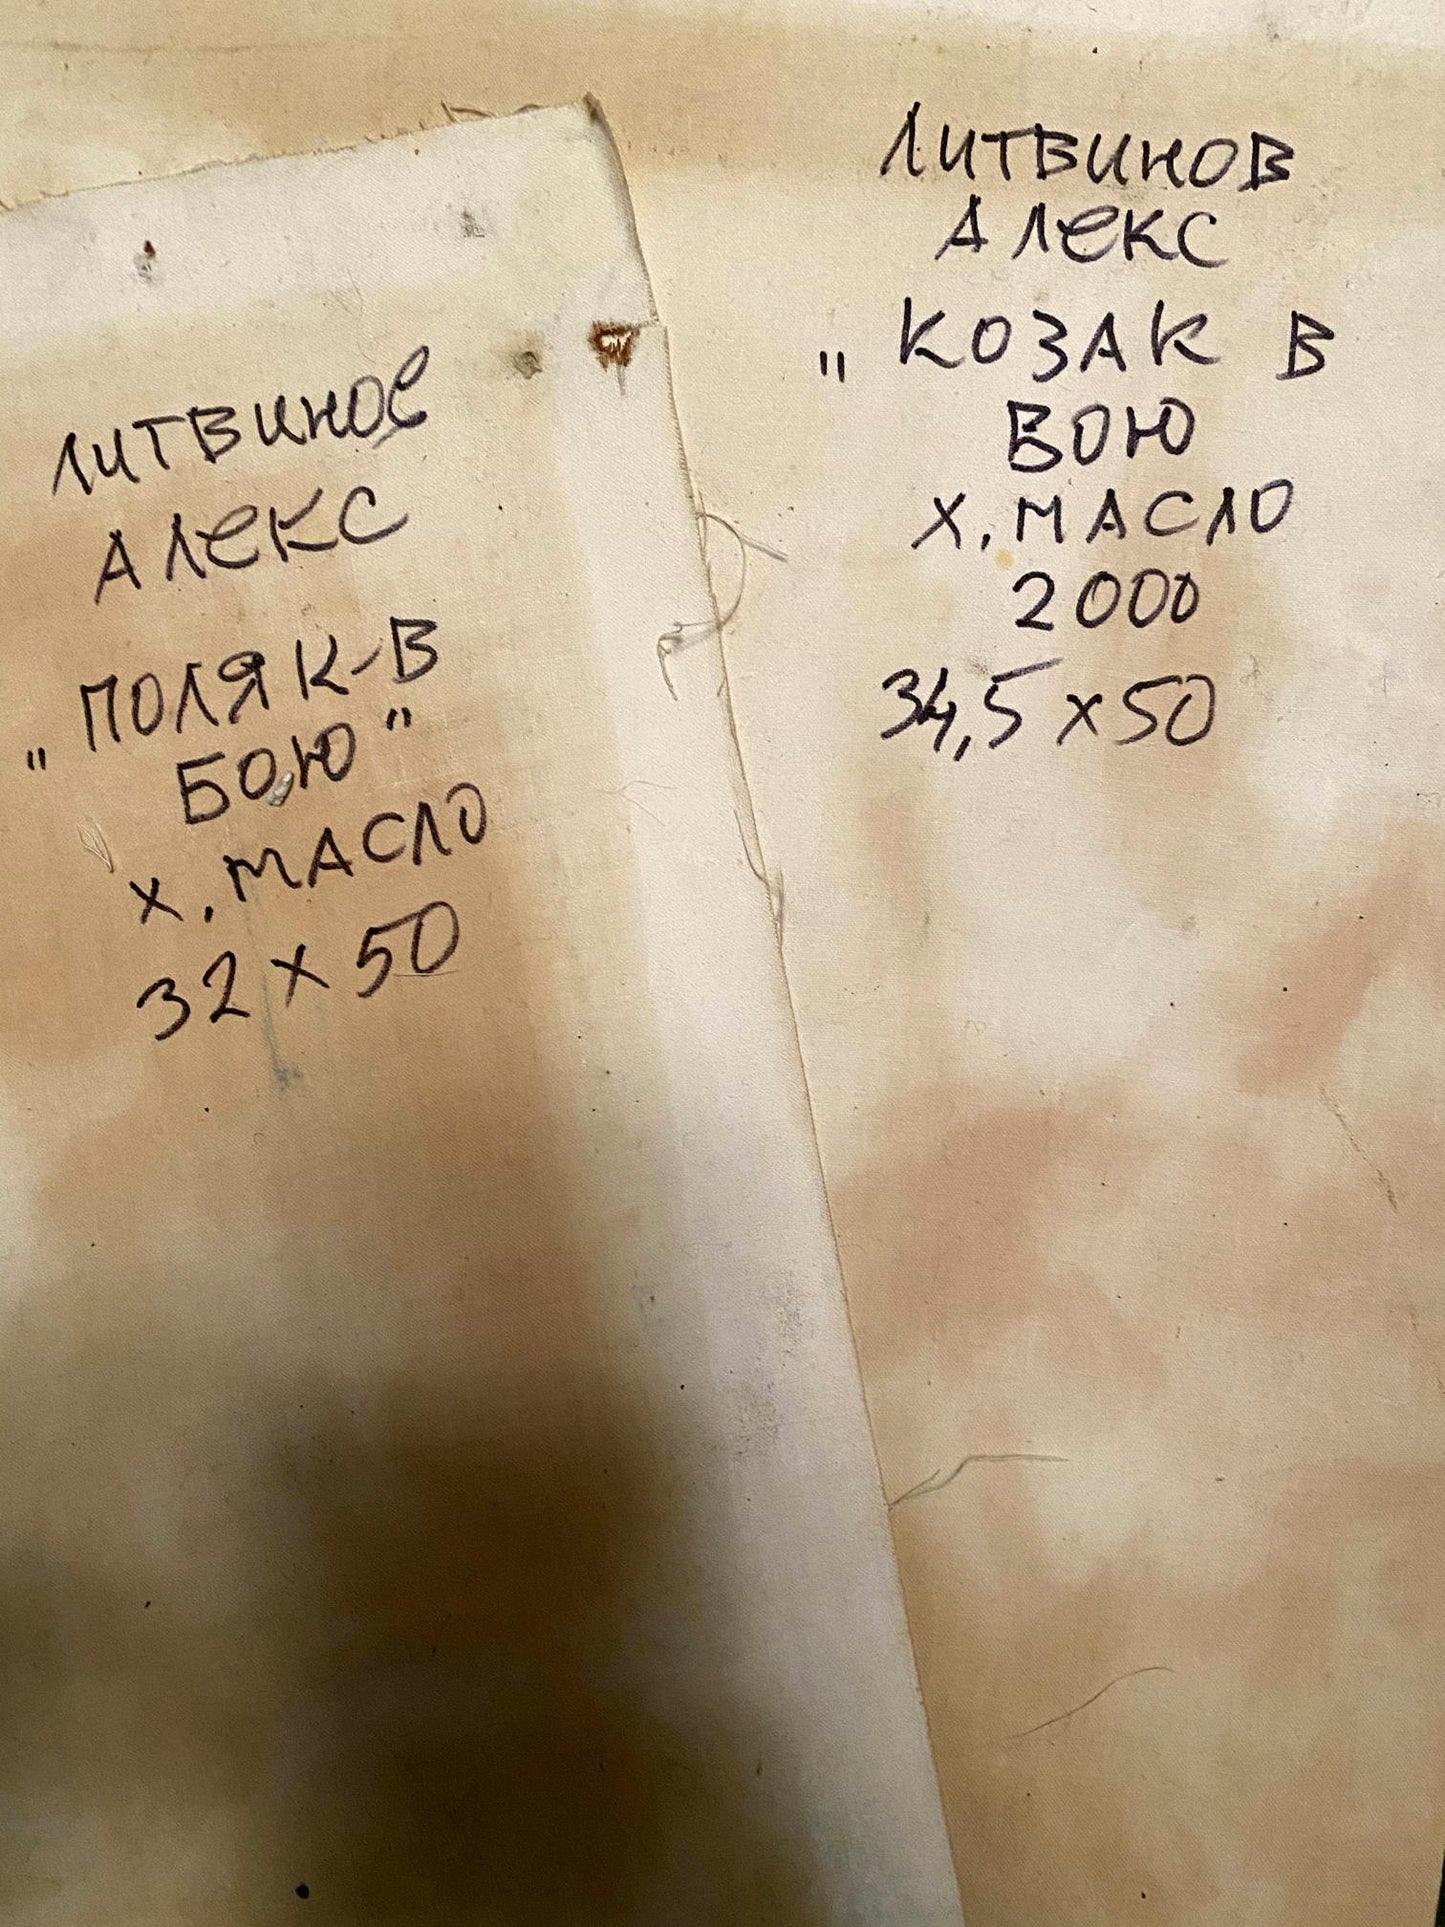 ЛИТВИНОВ
АЛЕКС
"ПОЛЯК-В
БОЮ"
Х. МАСЛО
32 х 50
ЛИТВИНОВ
АЛЕКС
"КОЗАК В
БОЮ
Х. МАСЛО
2000
34,5 х 50